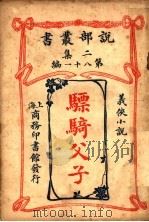 說部叢書
二集
第八十一編
義俠小說
驃騎父子
上海商務印書館發行